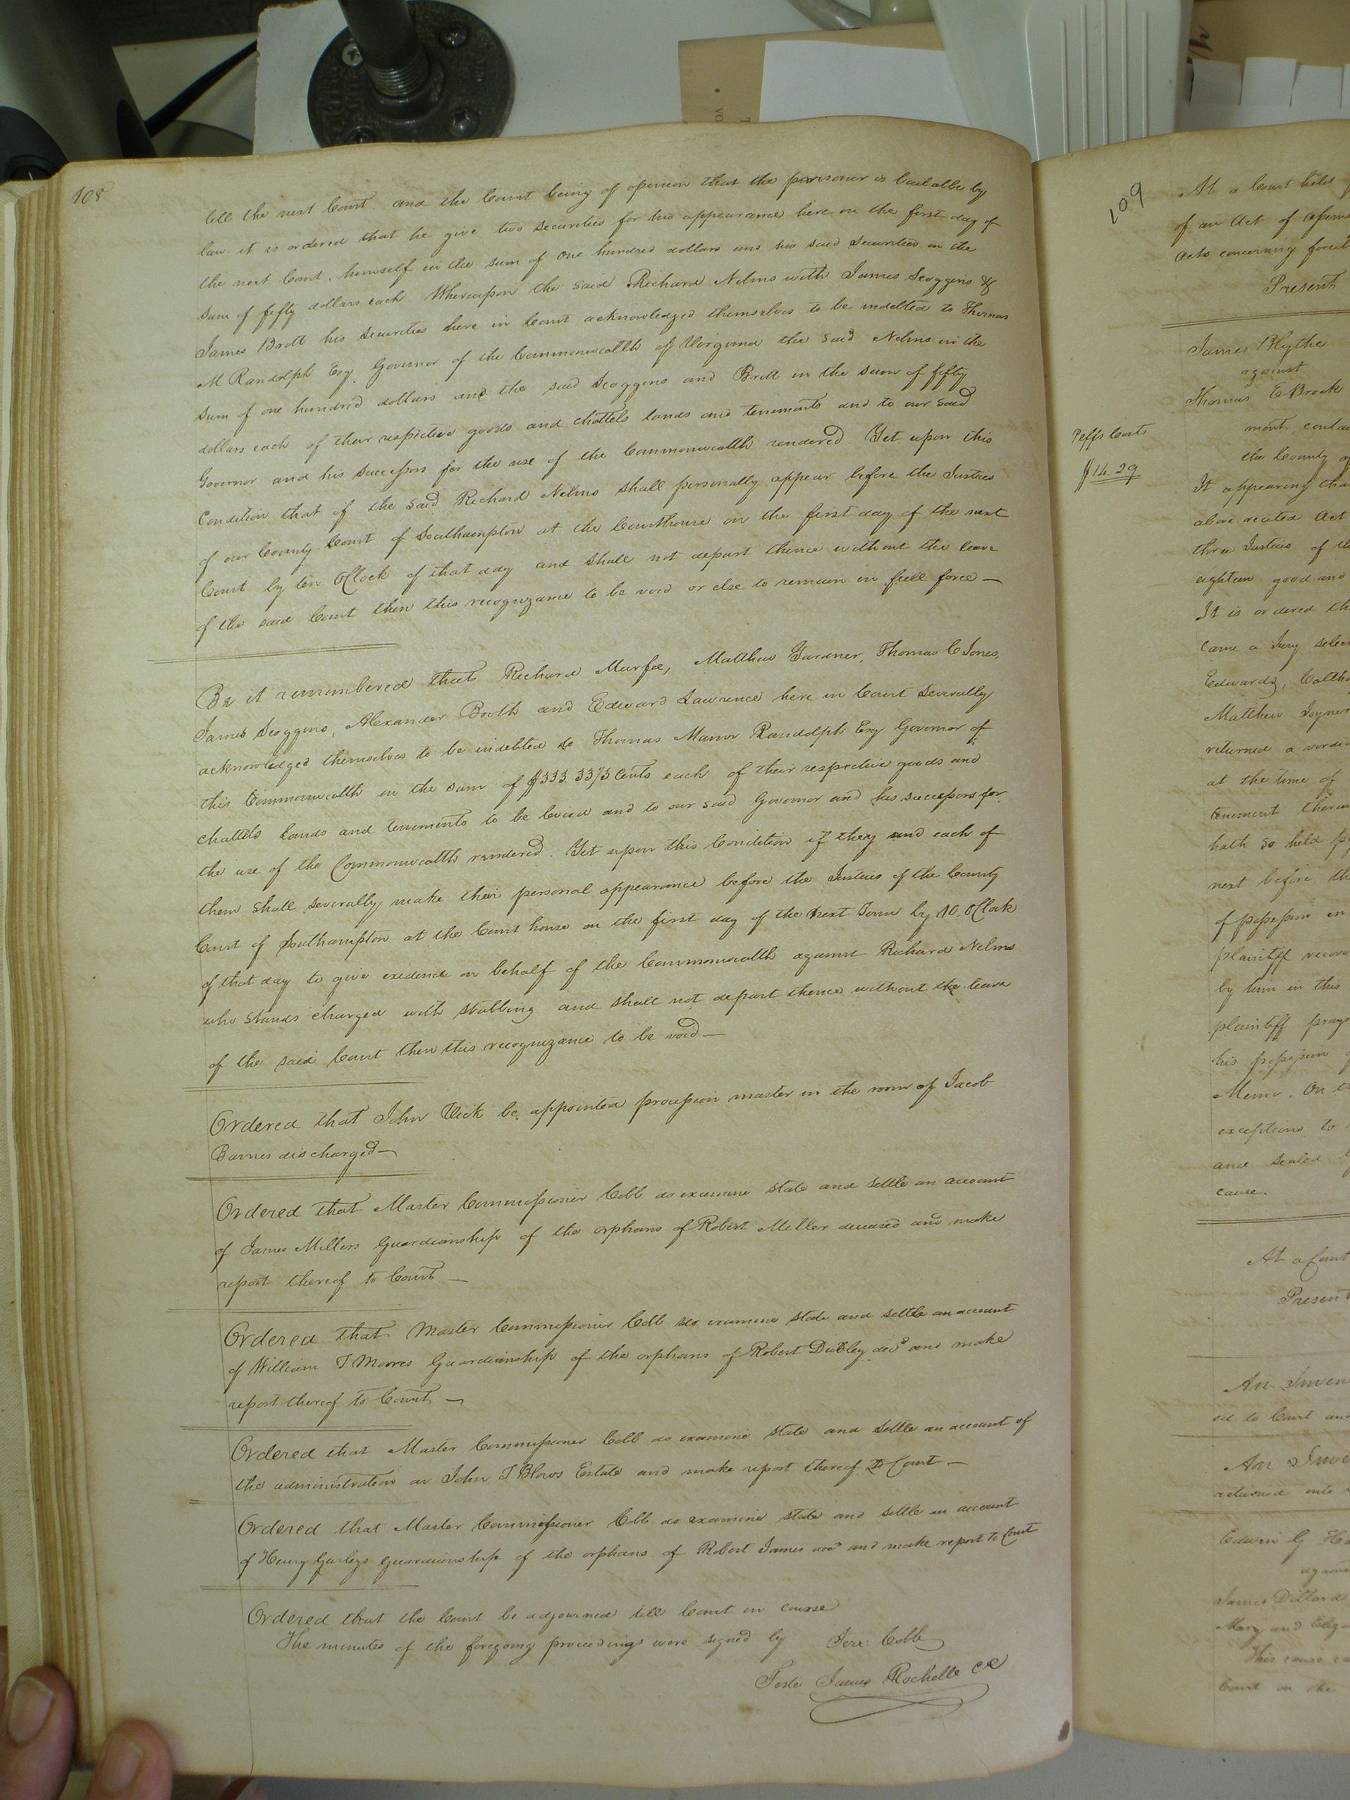 108
till the next Court and the Court being of opinion that the prisoner is bailable by
law it is ordered that he give two securities for his appearance here on the first day of
the next Court, himself in the sum of one hundred dollars and his said securities in the
sum of fifty dollars each Whereupon the said Richard Nelms with James Scoggins &
James Britt his securities here in Court acknowledged themselves to be indebted to Thomas
M Randolph Esq. Governor of the Commonwealth of Virginia the said Nelms in the
sum of one hundred dollars and the said Scoggins and Britt in the sum of fifty
dollars each of their respective goods and chattels lands and tenements and to our said
Governor and his successors for the use of the Commonwealth rendered Yet upon this
Condition that if the said Richard Nelms shall personally appear before the Justices
of our County Court of Southampton at the Courthouse on the first day of the next
Court by ten OClock of that day and shall not depart thence without the leave
of the said Court then this recognizance to be void or else to remain in full force —
Be it remembered that Richard Murfee, Matthew Gardner, Thomas C Jones,
James Scoggins, Alexander Booth and Edward Lawrence here in Court severally
acknowledged themselves to be indebted to Thomas Mann Randolph Esq Governor of
this Commonwealth in the sum of $333 33⅓ Cents each of their respective goods and
chattels Lands and tenements to be levied and to our said Governor and his successors for
the use of the Commonwealth rendered. Yet upon this Condition if they and each of
them shall severally make their personal appearance before the Justices of the County
Court of Southampton at the Court house on the first day of the next Term by 10. OClock
of that day to give evidence on behalf of the Commonwealth against Richard Nelms
who stands charged with stabbing and shall not depart thence without the leave
of the said Court then this recognizance to be void —
Ordered that John Vick be appointed procession master in the room of Jacob
Barnes discharged —
Ordered that Master Commissioner Cobb do examine state and settle an account
of James Millers Guardianship of the orphans of Robert Miller deceased and make
report thereof to Court —
Ordered that Master Commissioner Cobb do examine state and settle an account
of William T Moores Guardianship of the orphans of Robert Dudley decd and make
report thereof to Court —
Ordered that Master Commissioner Cobb do examine state and settle an account of
the administration on John T Blows Estate and make report thereof to Court —
Ordered that Master Commissioner Cobb do examine state and settle an account
of Henry Gurleys guardianship of the orphans of Robert James decd and make report to Court
Ordered that the Court be adjourned till Court in course
The minutes of the foregoing proceedings were signed by Jere Cobb
Teste James Rochelle CC
109
At a Court held
of an Act of
Acts concerning
Present
James Blythe
against
Thomas E Brock
ment
the County
Plffs Costs
$14.29
It appearing
above recited Act
three Justices of
eighteen good and
It is ordered
Came a Jury
Edwards,
Matthew Joyner
returned a
at the time of
tenement
hath so held
next before the
of possession in
plaintiff
by him in this
plaintiff
his possession
Memo. On
exceptions to
and sealed
cause.
At a Court
Present
An
ed to Court and
An
returned
Edwin G
James Dillard
Mary and
This cause
Court on the